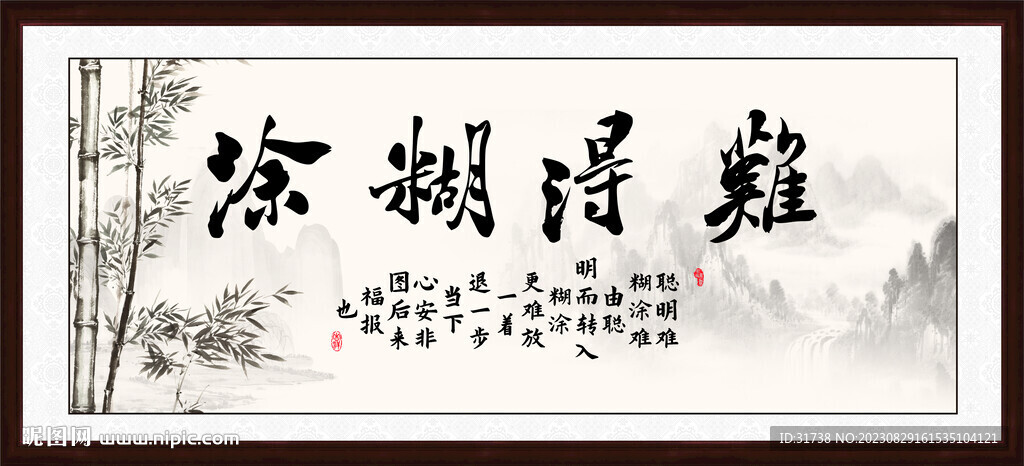 難得糊涂
聪明难
糊涂难
由聪
明而转入
糊涂
更难放
一着
退一步
当下
心安非
图后来
福报
也
昵图网 www.nipic.com
ID:31738 NO:20230829161535104121